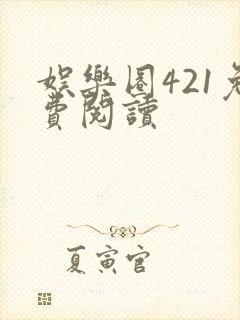 娛樂圈421免
費閱讀
夏寅官